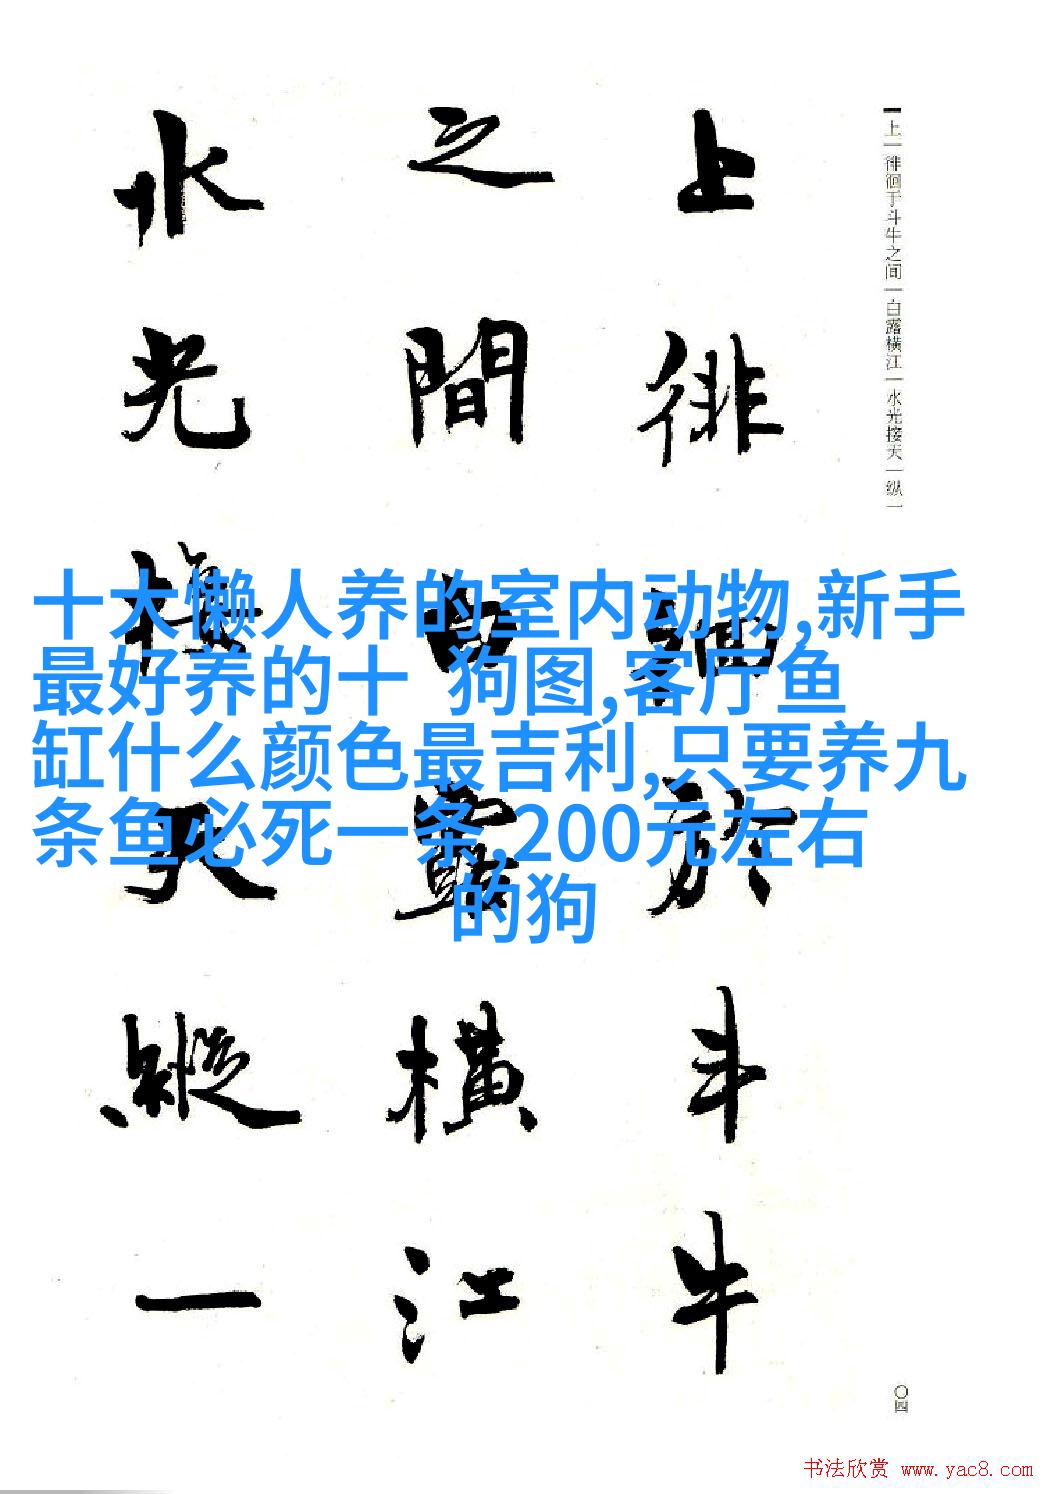 上|徘徊于斗牛之间|白露横江|水光接天|纵一
上徘徊於斗牛
之間白露橫江
水光接天縱一
十大懒人养的室内动物,新手
最好养的十 狗图,客厅鱼
缸什么颜色最吉利,只要养九
条鱼必死一条,200元左右
的狗
〇四
书法欣赏 www.yac8.com